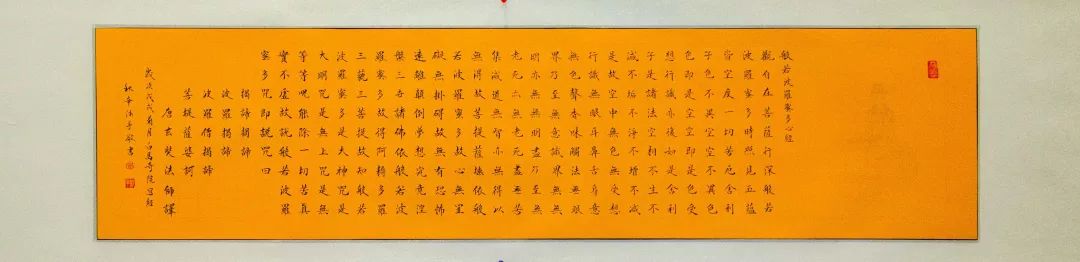 般若波羅蜜多心經
觀自在菩薩行深般若
波羅蜜多時照見五蘊
皆空度一切苦厄舍利
子色不異空空不異色
色即是空空即是色受
想行識亦復如是舍利
子是諸法空相不生不
滅不垢不淨不增不減
是故空中無色無受想
行識無眼耳鼻舌身意
無色聲香味觸法無眼
界乃至無意識界無無
明亦無無明盡乃至無
老死亦無老死盡無苦
集滅道無智亦無得以
無得故菩提薩埵依般
若波羅蜜多故心無罣
礙無掛碍故無有恐怖
遠離顛倒夢想究竟涅
槃三世諸佛依般若波
羅蜜多故得阿耨多羅
三藐三菩提故知般若
波羅蜜多是大神咒是
大明咒是無上咒是無
等等咒能除一切苦真
實不虛故説般若波羅
蜜多咒即説咒曰
揭諦揭諦
波羅揭諦
波羅僧揭諦
菩提薩婆訶
唐玄奘法師譯
歲次戊戌月白馬寺院寫經
敬書